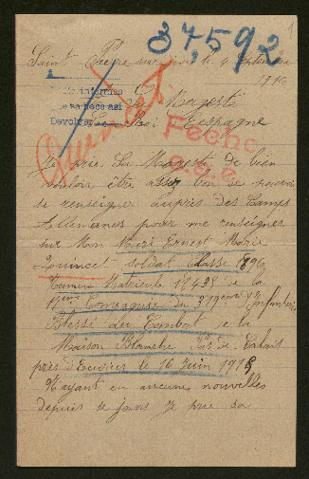 34,592
1
Saint Pierre sur Dives le 4 Septembre
1916
A Sa Majesté
Le Roi d'Espagne
Fecho
Quincet
Je prie Sa Majesté de bien
vouloir être assez bon de pouvoir
se renseigner auprès des Camps
Allemands pour me renseigner
sur Mon Mari Ernest Marie
Quincet soldat classe 1896
Numero Matricule 18438 a la
11eme Compagnie du
Blessé Au Combat a la
Maison Blanche Pas de Calais
près d'Ecurie le 16 Juin 1915
N'ayant eu aucunes nouvelles
depuis ce jour Je prie sa